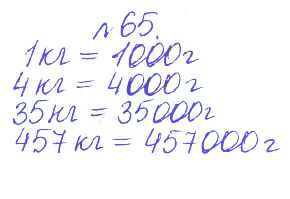 № 65.
1 кг = 1000 г
4 кг = 4000 г
35 кг = 35000 г
457 кг = 457000 г